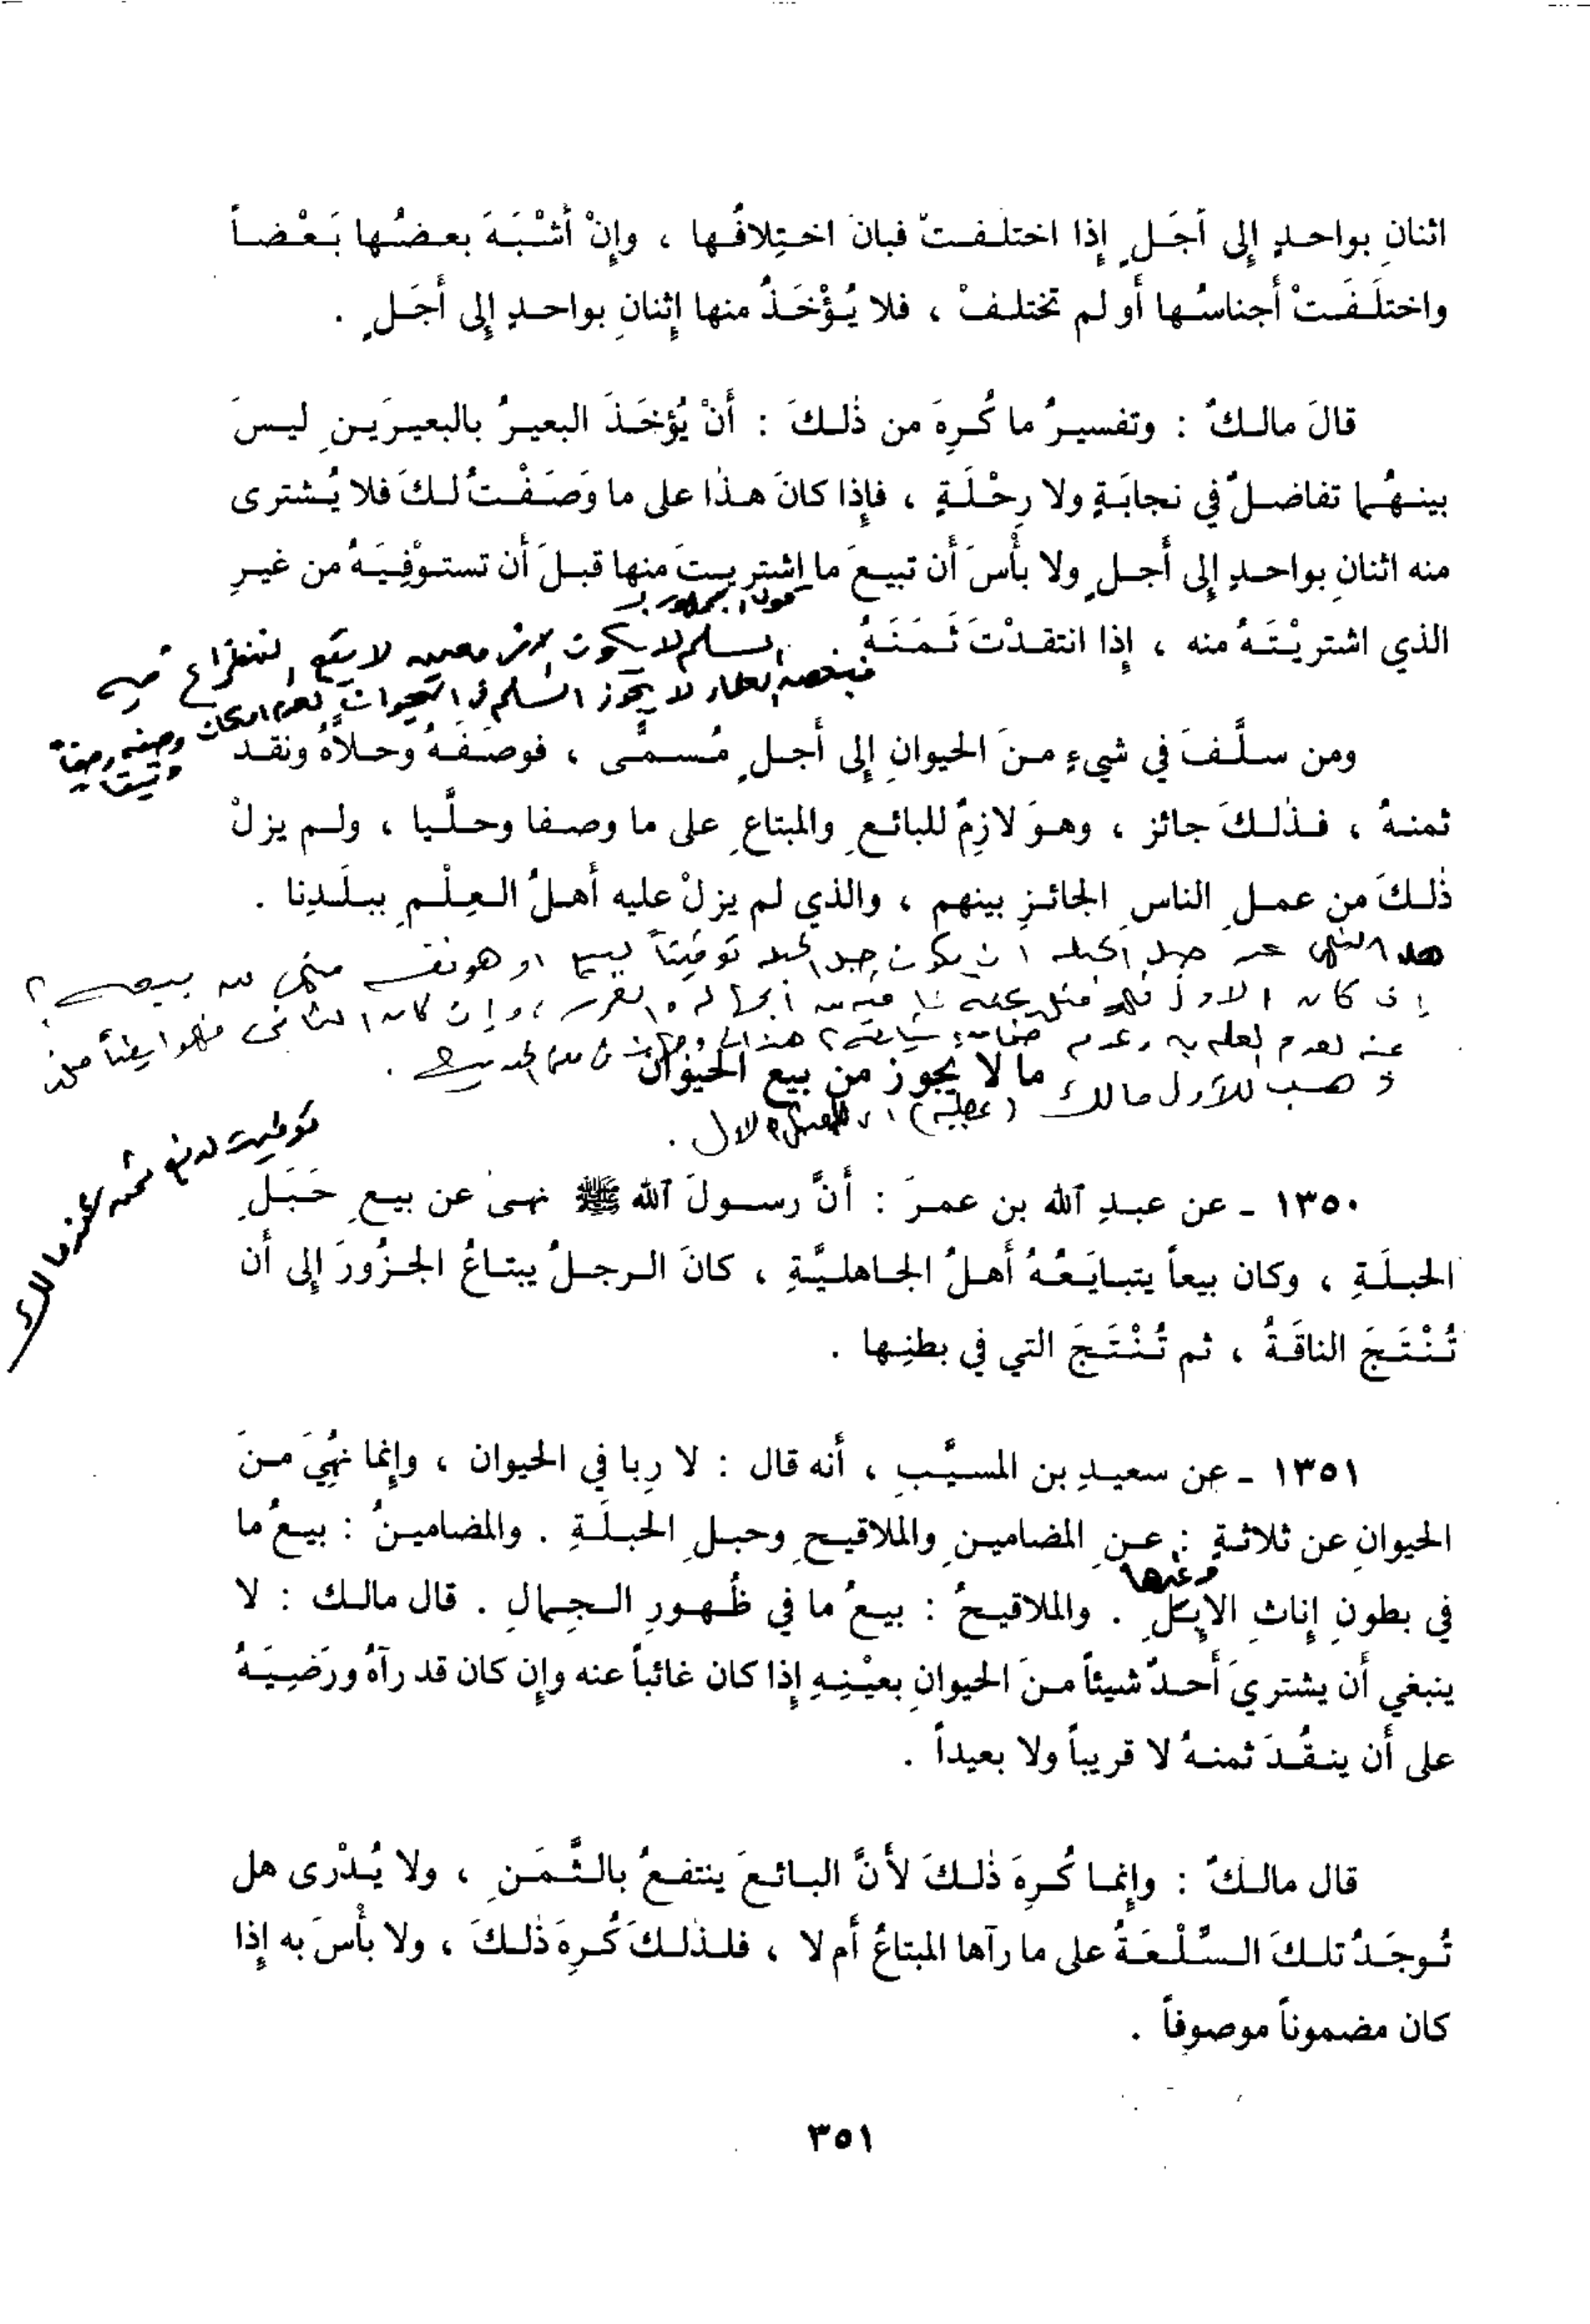 اثنانِ بواحدٍ إِلى أَجَلٍ إِذا اختلفتْ فبانَ اختِلافُها ، وإِنْ أَشْبَهَ بعضُها بَعْضاً
واختلَفَتْ أجناسُها أَو لم تختلفْ ، فلا يُؤْخَذُ منها إِثنانِ بواحدٍ إِلى أَجَلٍ .
قالَ مالكٌ : وتفسيرُ ما كُرِهَ من ذٰلكَ : أَنْ يُؤخَذَ البعيرُ بالبعيرَينِ ليسَ
بينهُما تفاضلٌ في نجابَةٍ ولا رِحْلَةٍ ، فإِذا كانَ هذا على ما وَصَفْتُ لكَ فلا يُشترى
منه اثنانِ بواحدٍ إِلى أَجلٍ ولا بأْسَ أَن تبيعَ ما اشتريتَ منها قبلَ أَن تستوْفِيَهُ من غيرِ
الذي اشتريْتَهُ منه ، إِذا انتقدْتَ ثَمَنَهُ .
السلم لا يكون في معين لا يتبع
لا يجوز السلم في الحيوان لعدم امكان وصفه وصفاً
ومن سلَّفَ في شيءٍ منَ الحيوانِ إِلى أَجلٍ مُسمًّى ، فوصَفَهُ وحلَّاهُ ونقد
ثمنهُ ، فذٰلكَ جائز ، وهوَ لازِمٌ للبائعِ والمبتاعِ على ما وصفا وحلَّيا ، ولم يزلْ
ذٰلكَ من عملِ الناسِ الجائزِ بينهم ، والذي لم يزلْ عليه أَهلُ العِلْمِ ببلَدِنا .
هل النهي عن حبل الحبلة ان يكون حبل الحبلة توقيتاً او هو نفسه منهي عن بيعه ؟
إن كان الاول فهو منهي عنه لما فيه من الجهالة والغرر ، وإن كان الثاني فهو ايضاً منهي
عنه لعدم العلم به وعدم
ما لا يجوز من بيع الحيوان
ذهب للأول مالك
توقيت لدفع ثمنه عند مالك
١٣٥٠ ـ عن عبدِ الله بن عمرَ : أَنَّ رسولَ الله ﷺ نهىٰ عن بيعِ حَبَلِ
الحبلَةِ ، وكان بيعاً يتبايَعُهُ أَهلُ الجاهليَّةِ ، كانَ الرجلُ يبتاعُ الجزُورَ إِلى أَن
تُنْتَجَ الناقَةُ ، ثم تُنْتَجَ التي في بطنِها .
١٣٥١ ـ عن سعيدِ بن المسيَّبِ ، أَنه قال : لا رِبا في الحيوان ، وإِنما نُهِيَ منَ
الحيوانِ عن ثلاثةٍ : عنِ المضامينِ والملاقيحِ وحبلِ الحبلَةِ . والمضامينُ : بيعُ ما
وغيرها
في بطونِ إِناثِ الإِبلِ . والملاقيحُ : بيعُ ما في ظُهورِ الجِمالِ . قال مالك : لا
ينبغي أَن يشتريَ أَحدٌ شيئاً منَ الحيوانِ بعيْنِهِ إِذا كان غائباً عنه وإِن كان قد رآهُ ورَضِيَهُ
على أَن ينقُدَ ثمنهُ لا قريباً ولا بعيداً .
قال مالكٌ : وإِنما كُرِهَ ذٰلكَ لأَنَّ البائعَ ينتفعُ بالثَّمَنِ ، ولا يُدْرى هل
تُوجَدُ تلكَ السِّلْعَةُ على ما رآها المبتاعُ أَم لا ، فلذلكَ كُرِهَ ذٰلكَ ، ولا بأْسَ به إِذا
كان مضموناً موصوفاً .
٣٥١